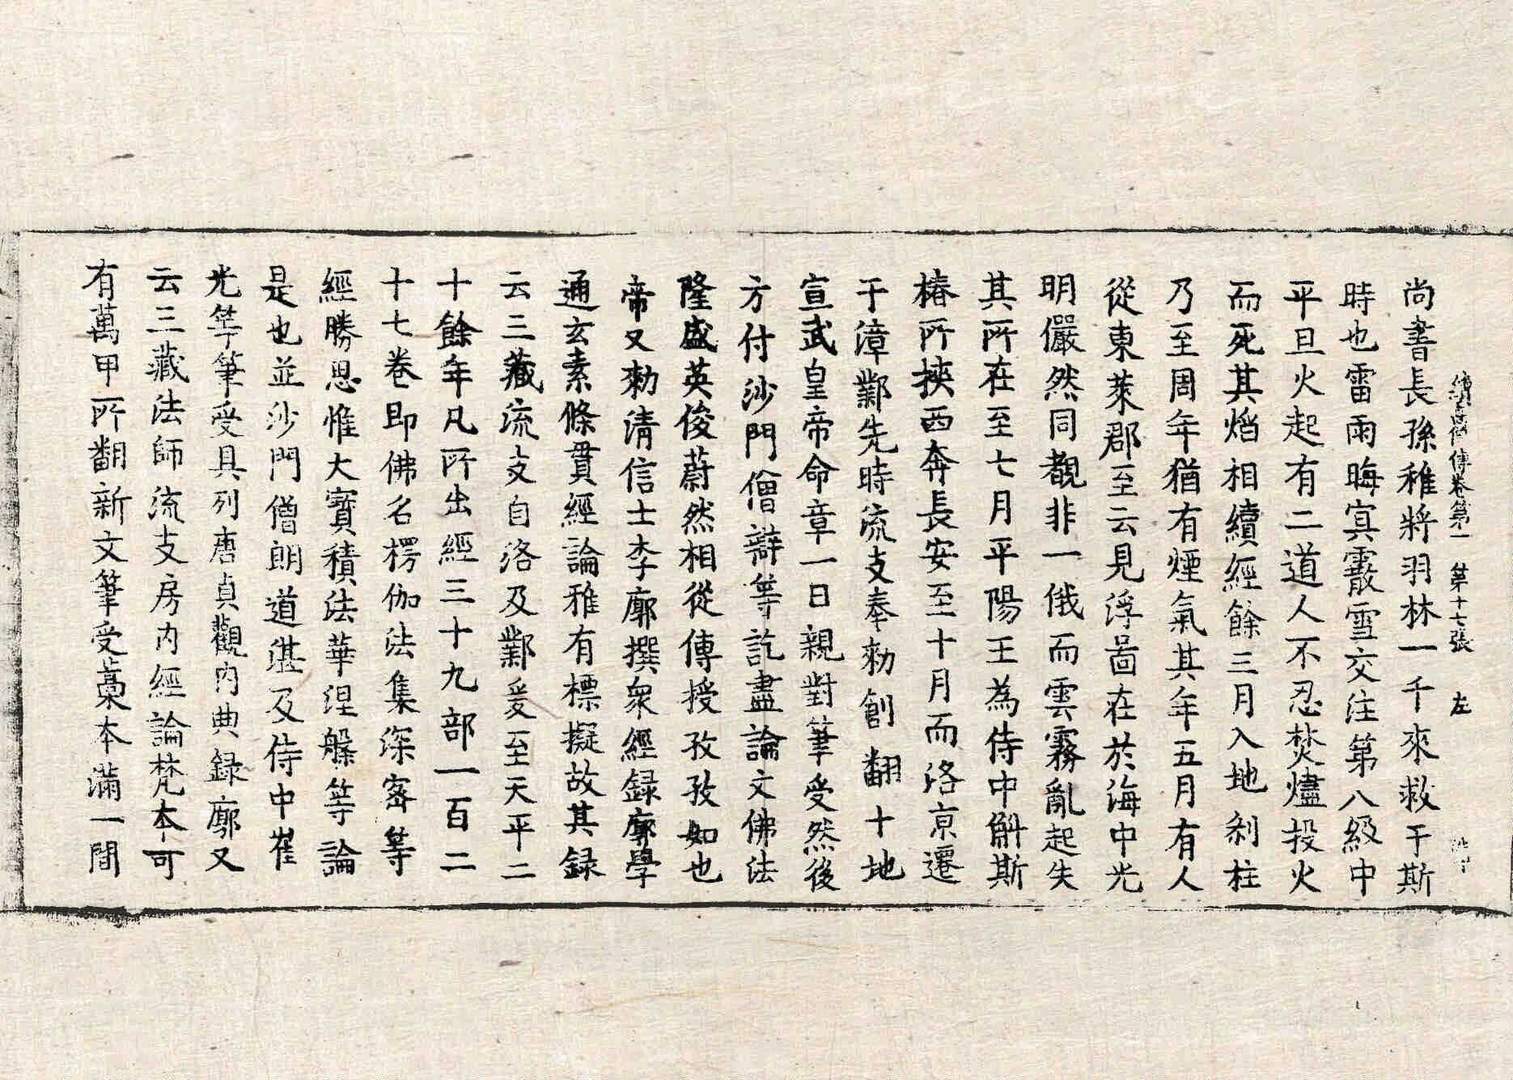 續高僧傳卷第一　第十七張　左
尚書長孫稚將羽林一千來救于斯
時也雷雨晦冥霰雪交注第八級中
平旦火起有二道人不忍焚燼投火
而死其焰相續經餘三月入地剎柱
乃至周年猶有煙氣其年五月有人
從東萊郡至云見浮啚在於海中光
明儼然同覩非一俄而雲霧亂起失
其所在至七月平陽王為侍中斛斯
椿所挾西奔長安至十月而洛京遷
于漳鄴先時流支奉勑創翻十地
宣武皇帝命章一日親對筆受然後
方付沙門僧辯等訖盡論文佛法
隆盛英俊蔚然相從傳授孜孜如也
帝又勑清信士李廓撰衆經録廓學
通玄素條貫經論雅有標擬故其録
云三藏流支自洛及鄴爰至天平二
十餘年凡所出經三十九部一百二
十七卷即佛名楞伽法集深密等
經勝思惟大寶積法華涅槃等論
是也並沙門僧朗道湛及侍中崔
光等筆受具列唐貞觀内典録廓又
云三藏法師流支房内經論梵本可
有萬甲所翻新文筆受藁本滿一間